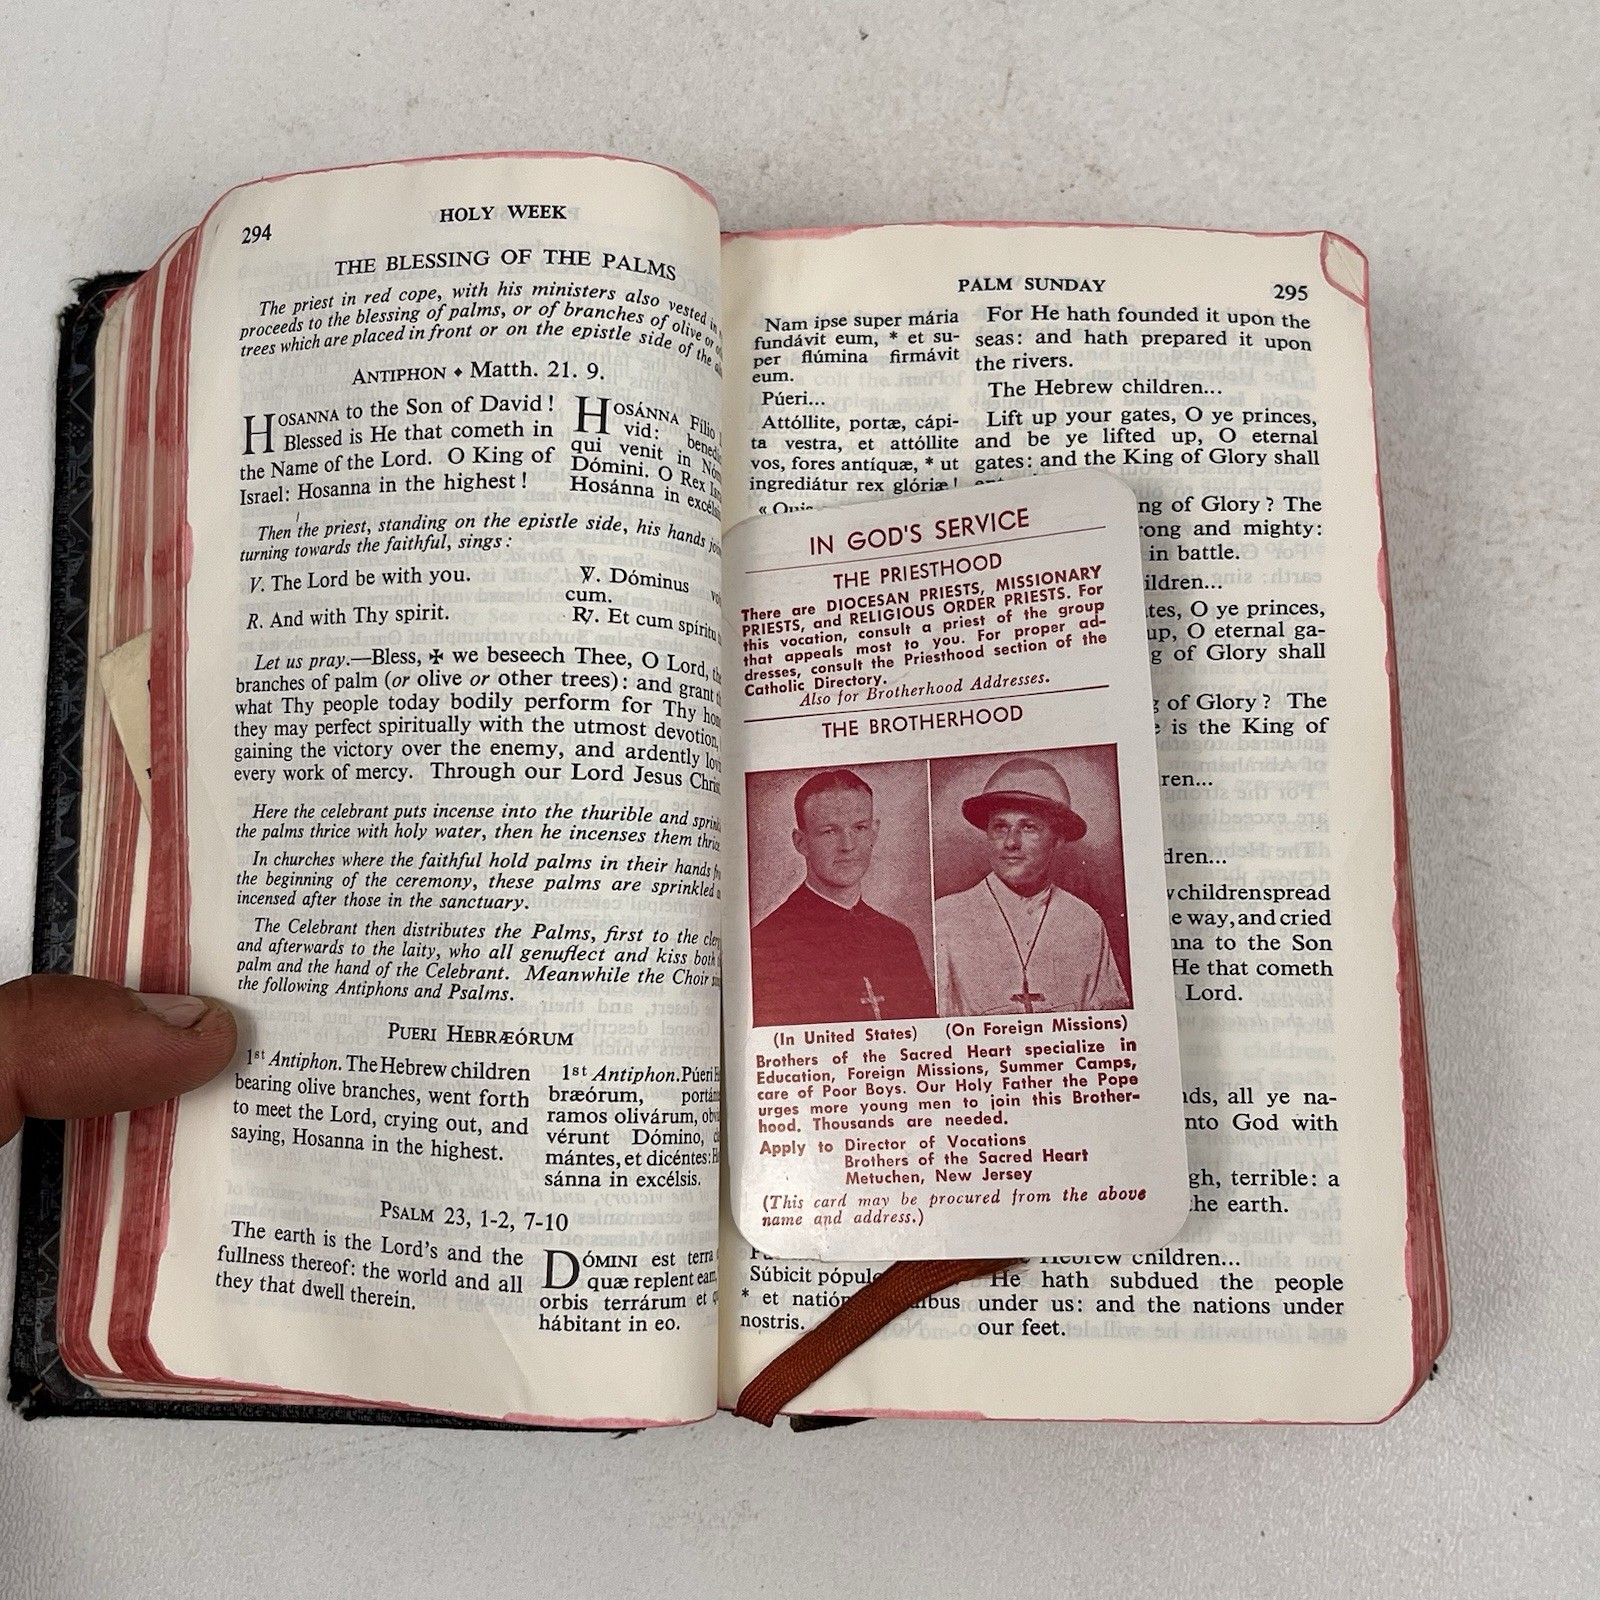 294
HOLY WEEK
THE BLESSING OF THE PALMS
The priest in red cope, with his ministers also vested in
proceeds to the blessing of palms, or of branches of olive or
trees which are placed in front or on the epistle side of the
ANTIPHON • Matth. 21. 9.
HOSANNA to the Son of David!
Blessed is He that cometh in
the Name of the Lord. O King of
Israel: Hosanna in the highest!
HOSÁNNA Fílio
vid:
qui venit in
Dómini. O Rex
Hosánna in
Then the priest, standing on the epistle side, his hands
turning towards the faithful, sings:
V. The Lord be with you.
R. And with Thy spirit.
℣. Dóminus
cum.
℟. Et cum spíritu
Let us pray.—Bless, ✠ we beseech Thee, O Lord,
branches of palm (or olive or other trees): and grant
what Thy people today bodily perform for Thy
they may perfect spiritually with the utmost devotion,
gaining the victory over the enemy, and ardently
every work of mercy. Through our Lord Jesus
Here the celebrant puts incense into the thurible and
the palms thrice with holy water, then he incenses them
In churches where the faithful hold palms in their hands
the beginning of the ceremony, these palms are sprinkled
incensed after those in the sanctuary.
The Celebrant then distributes the Palms, first to the
and afterwards to the laity, who all genuflect and kiss both
palm and the hand of the Celebrant. Meanwhile the Choir
the following Antiphons and Psalms.
PUERI HEBRÆÓRUM
1st Antiphon. The Hebrew children
bearing olive branches, went forth
to meet the Lord, crying out, and
saying, Hosanna in the highest.
1st Antiphon. Púeri
bræórum,
ramos olivárum,
vérunt Dómino,
mántes, et dicéntes:
sánna in excélsis.
PSALM 23, 1-2, 7-10
The earth is the Lord's and the
fullness thereof: the world and all
they that dwell therein.
DÓMINI est terra
quæ replent eam,
orbis terrárum et
hábitant in eo.
PALM SUNDAY
295
Nam ipse super mária
fundávit eum, * et su-
per flúmina firmávit
eum.
Púeri...
Attóllite, portæ, cápi-
ta vestra, et attóllite
vos, fores antíquæ, * ut
ingrediátur rex glóriæ!
« Quis
For He hath founded it upon the
seas: and hath prepared it upon
the rivers.
The Hebrew children...
Lift up your gates, O ye princes,
and be ye lifted up, O eternal
gates: and the King of Glory shall
of Glory? The
and mighty:
in battle.
O ye princes,
up, O eternal ga-
of Glory shall
of Glory? The
is the King of
children spread
way, and cried
to the Son
He that cometh
Lord.
all ye na-
God with
terrible: a
the earth.
Hebrew children...
He hath subdued the people
under us: and the nations under
our feet.
Súbicit
* et
nostris.
IN GOD'S SERVICE
THE PRIESTHOOD
There are DIOCESAN PRIESTS, MISSIONARY
PRIESTS, and RELIGIOUS ORDER PRIESTS. For
this vocation, consult a priest of the group
that appeals most to you. For proper ad-
dresses, consult the Priesthood section of the
Catholic Directory.
Also for Brotherhood Addresses.
THE BROTHERHOOD
(In United States) (On Foreign Missions)
Brothers of the Sacred Heart specialize in
Education, Foreign Missions, Summer Camps,
care of Poor Boys. Our Holy Father the Pope
urges more young men to join this Brother-
hood. Thousands are needed.
Apply to Director of Vocations
Brothers of the Sacred Heart
Metuchen, New Jersey
(This card may be procured from the above
name and address.)